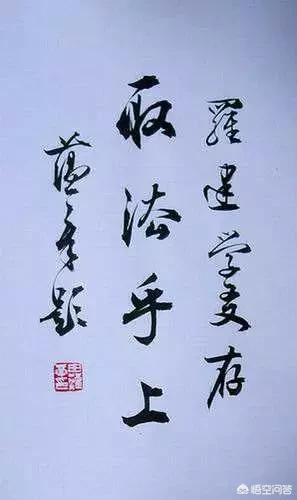 羅建学友存
取法乎上
蘊章题
悟空问答